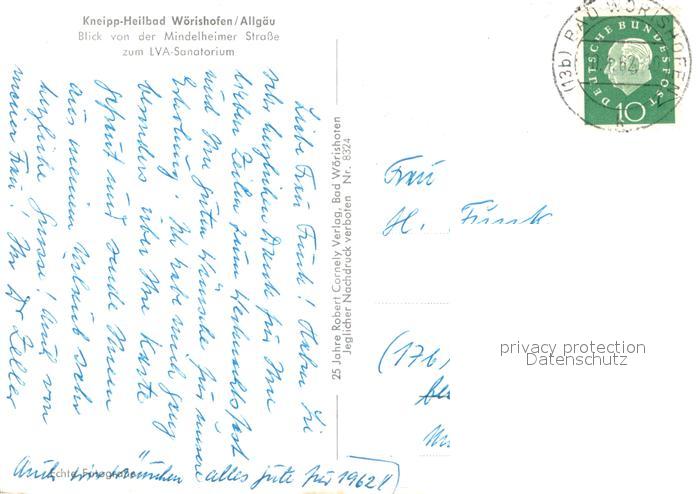 Kneipp-Heilbad Wörishofen/Allgäu
Blick von der Mindelheimer Straße
zum LVA-Sanatorium
Liebe Frau Funk! Haben Sie
sehr herzlichen Dank für Ihre
lieben Zeilen zum Weihnachtsfest
und Ihre guten Wünsche für unsere
Erholung! Ich habe mich ganz
besonders über Ihre Karte
gefreut und sende Ihnen
aus meinem Urlaub sehr
herzliche Grüsse! Auch von
meiner Frau! Ihr Dr Zeller
Auch wir wünschen alles gute für 1962!
Echte Fotografie
25 Jahre Robert Cornely Verlag, Bad Wörishofen
Jeglicher Nachdruck verboten Nr. 8324
(13b) BAD WÖRISHOFEN
DEUTSCHE BUNDESPOST
10
Frau
H. Funk
(17b)
privacy protection
Datenschutz